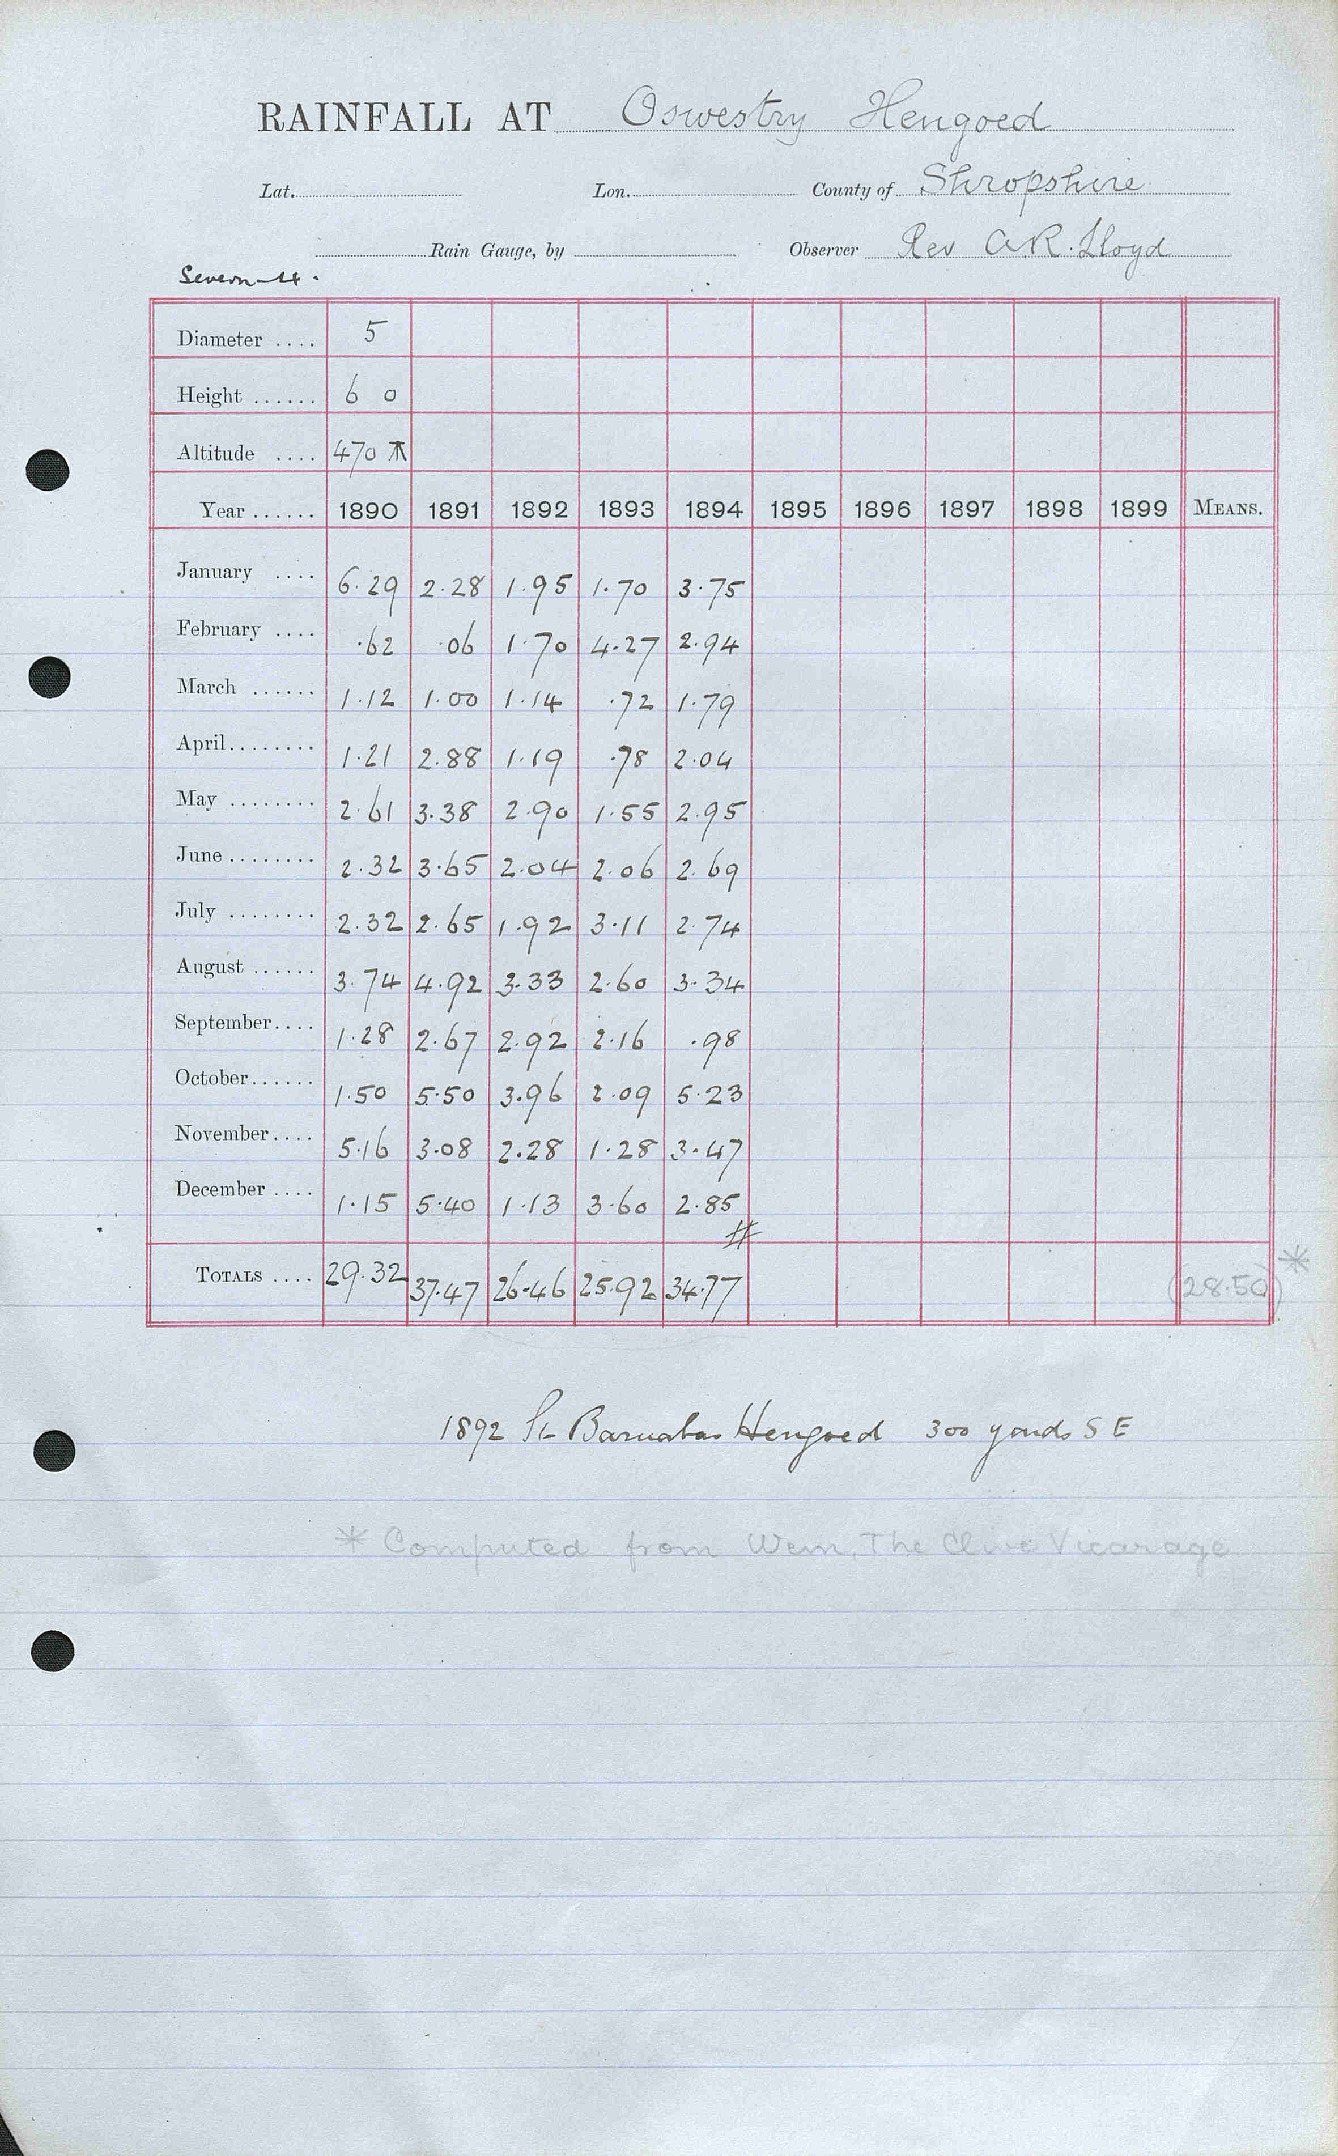 RAINFALL AT Oswestry Hengoed
Lat. Lon. County of Shropshire
Rain Gauge, by Observer Rev A R. Lloyd
Severn-4.
Diameter .... 5
Height ...... 6 0
Altitude .... 470
Year ...... 1890 1891 1892 1893 1894 1895 1896 1897 1898 1899 MEANS.
January .... 6.29 2.28 1.95 1.70 3.75
February .... .62 .06 1.70 4.27 2.94
March ...... 1.12 1.00 1.14 .72 1.79
April........ 1.21 2.88 1.19 .78 2.04
May ........ 2.61 3.38 2.90 1.55 2.95
June ........ 2.32 3.65 2.04 2.06 2.69
July ........ 2.32 2.65 1.92 3.11 2.74
August ...... 3.74 4.92 3.33 2.60 3.34
September.... 1.28 2.67 2.92 2.16 .98
October...... 1.50 5.50 3.96 2.09 5.23
November.... 5.16 3.08 2.28 1.28 3.47
December .... 1.15 5.40 1.13 3.60 2.85
#
TOTALS .... 29.32 37.47 26.46 25.92 34.77 (28.50)*
1892 St Barnabas Hengoed 300 yards S E
* Computed from Wem, The Clive Vicarage